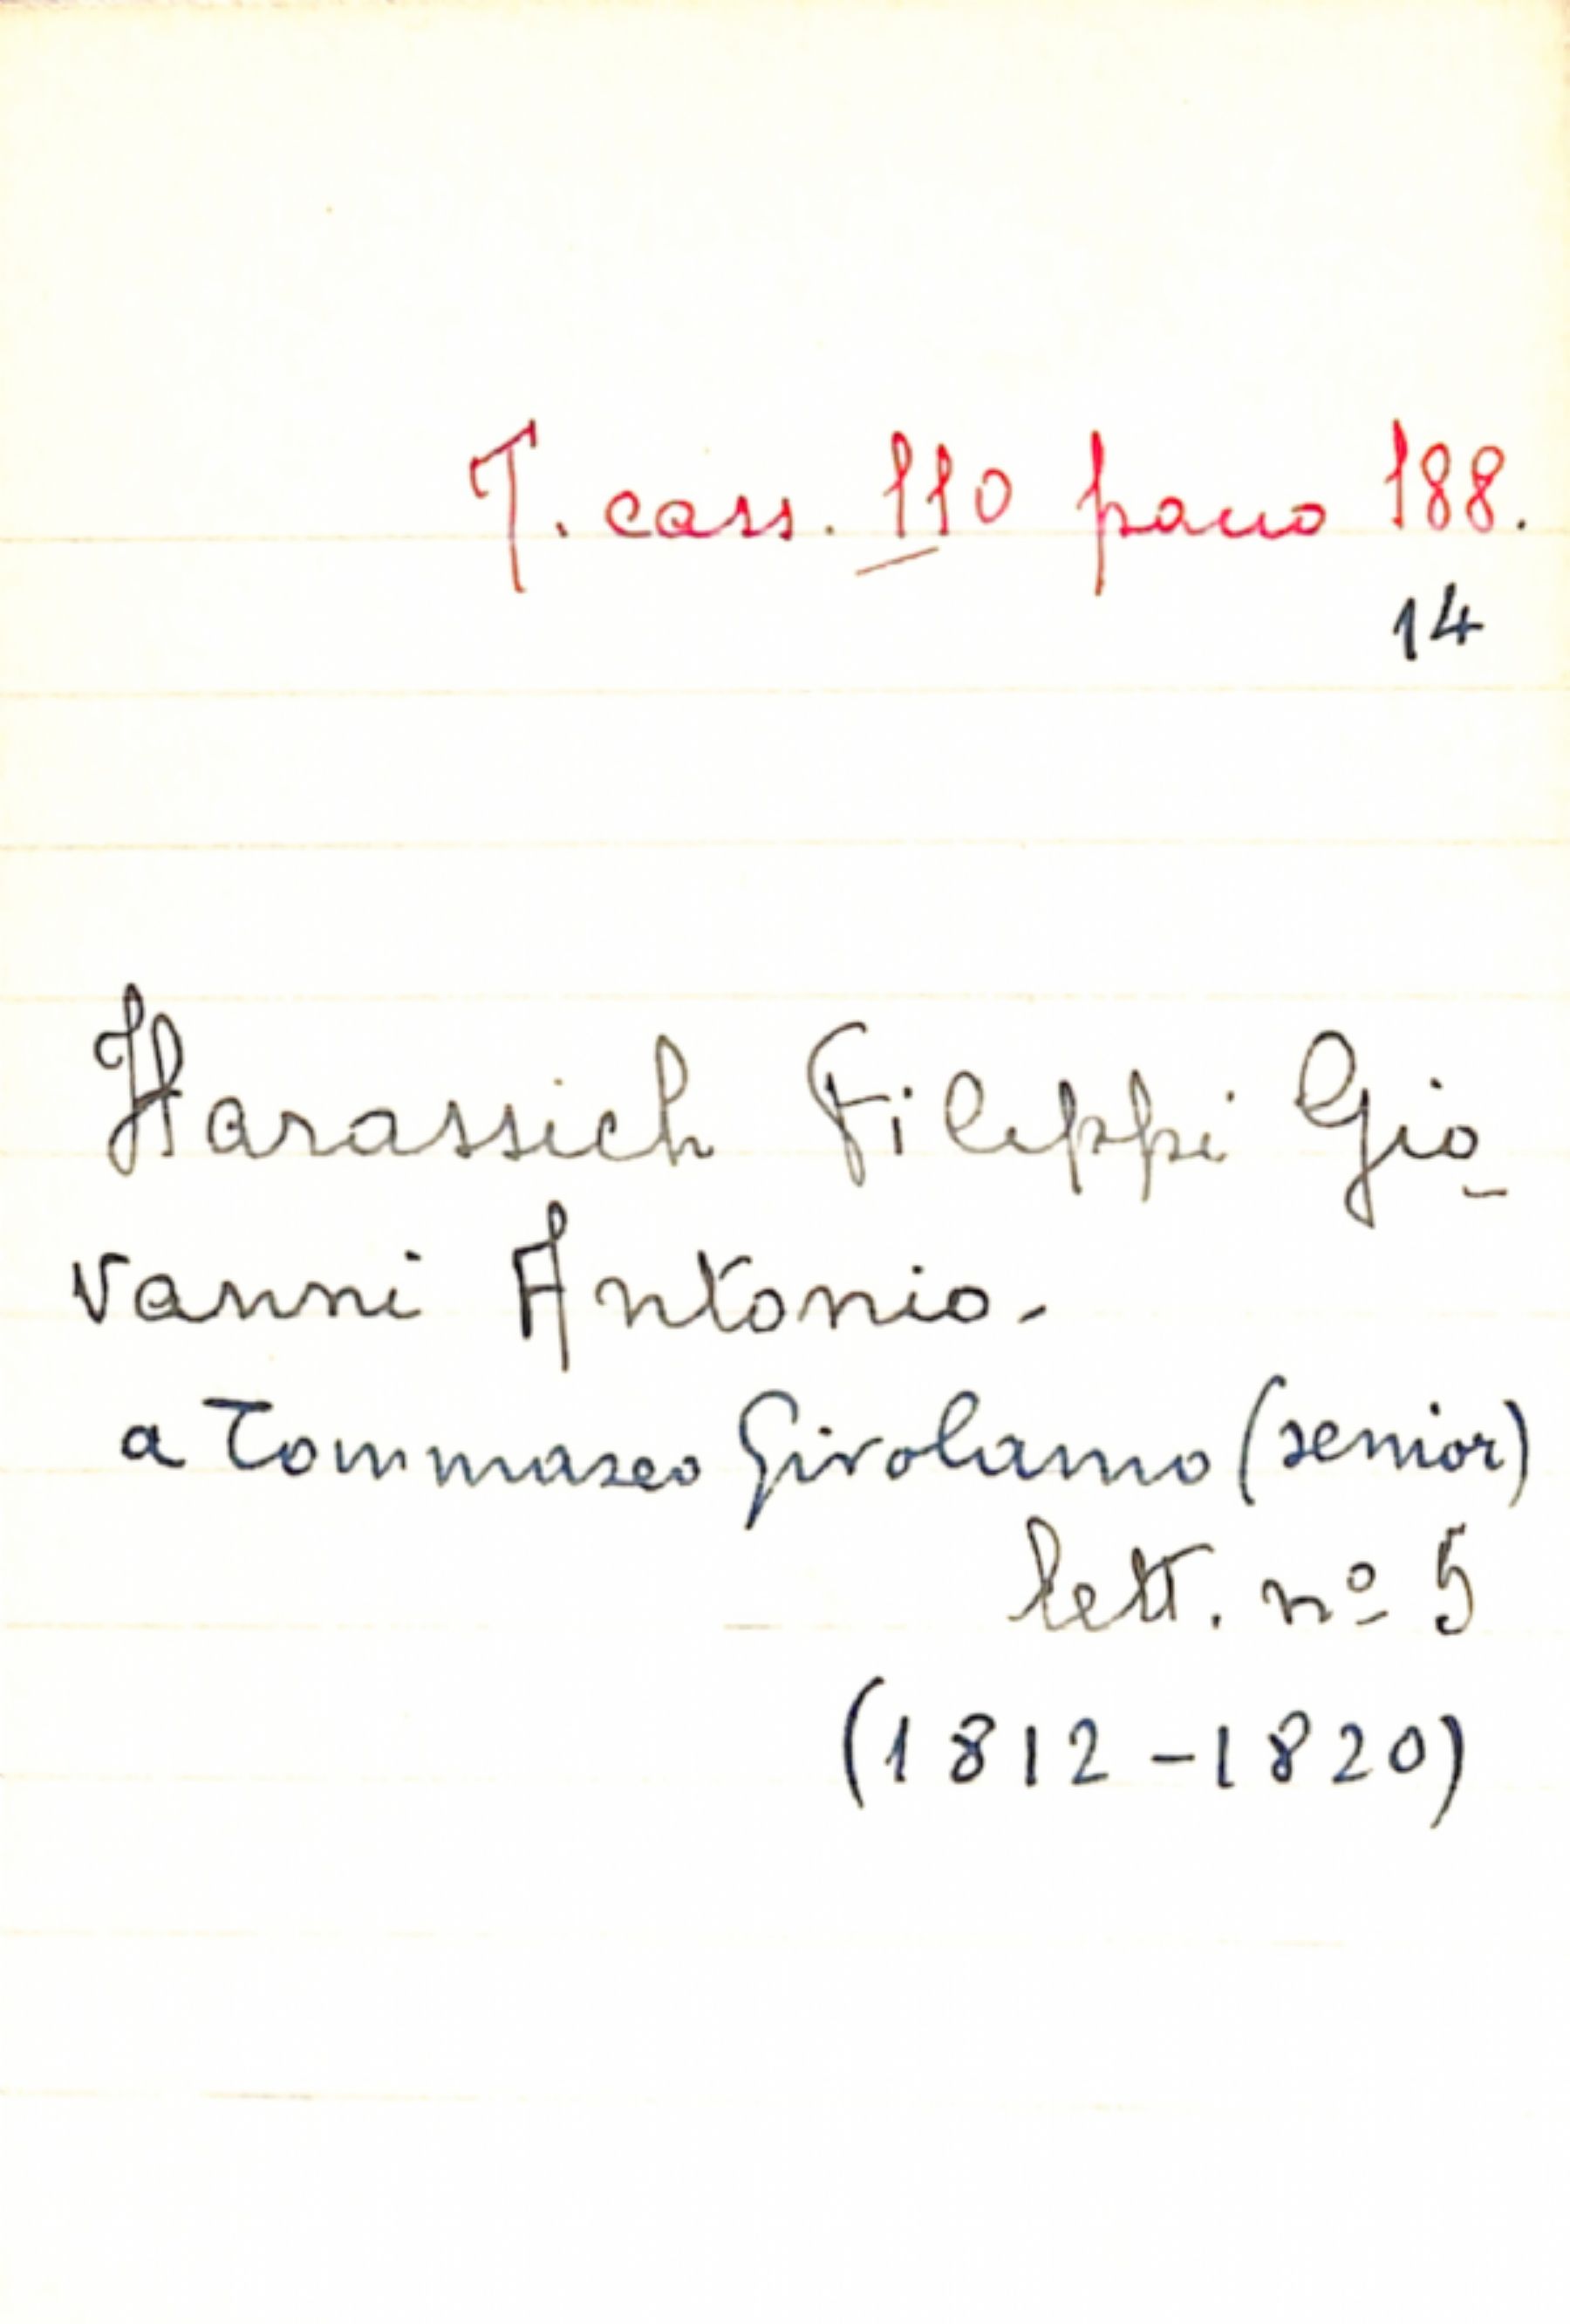 T. cass. 110 panno 188.
14
Harassich Filippi Gio-
vanni Antonio.
a Tommaseo Girolamo (senior)
lett. nº 5
(1812-1820)